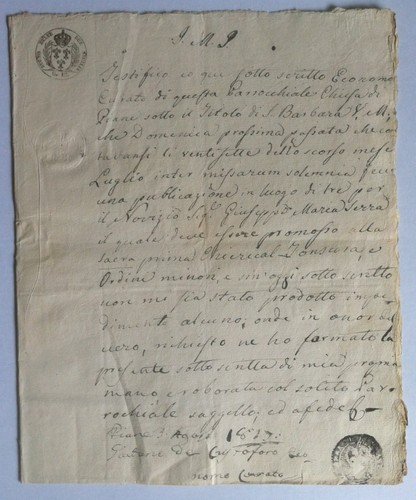 J. M. J.
Testifico io qui sotto scritto Economo
Curato di questa Parrocchiale Chiesa di
Piane sotto il Titolo di S. Barbara V. M.
che Domenica prossima passata che con
tavansi li ventisette dello scorso mese
Luglio inter missarum solemnia feci
una publicazione in luogo di tre per
il Novizio Sig. Giuseppe Maria Serra
il quale deve essere promosso alla
sacra prima Cherical Tonsura, e
Ordini minori, e sin'oggi sotto scritto
non mi sia stato prodotto impe
dimento alcuno, onde in onor del
vero, richiesto ne ho formato la
presente sotto scritta di mia propria
mano e roborata col solito Par
rocchiale suggello; ed a fede
Piane 3 Agosto 1817:
Gaetano De Cristoforo Eco
nomo Curato